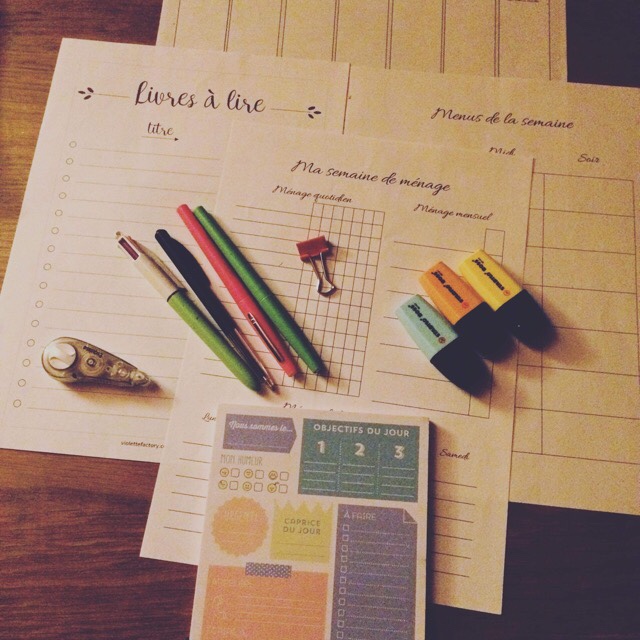 Livres à lire
titre
Menus de la semaine
Midi
Soir
Ma semaine de ménage
Ménage quotidien
Ménage mensuel
Samedi
violettefactory
Nous sommes le...
OBJECTIFS DU JOUR
1 2 3
MON HUMEUR
CAPRICE
DU JOUR
À FAIRE